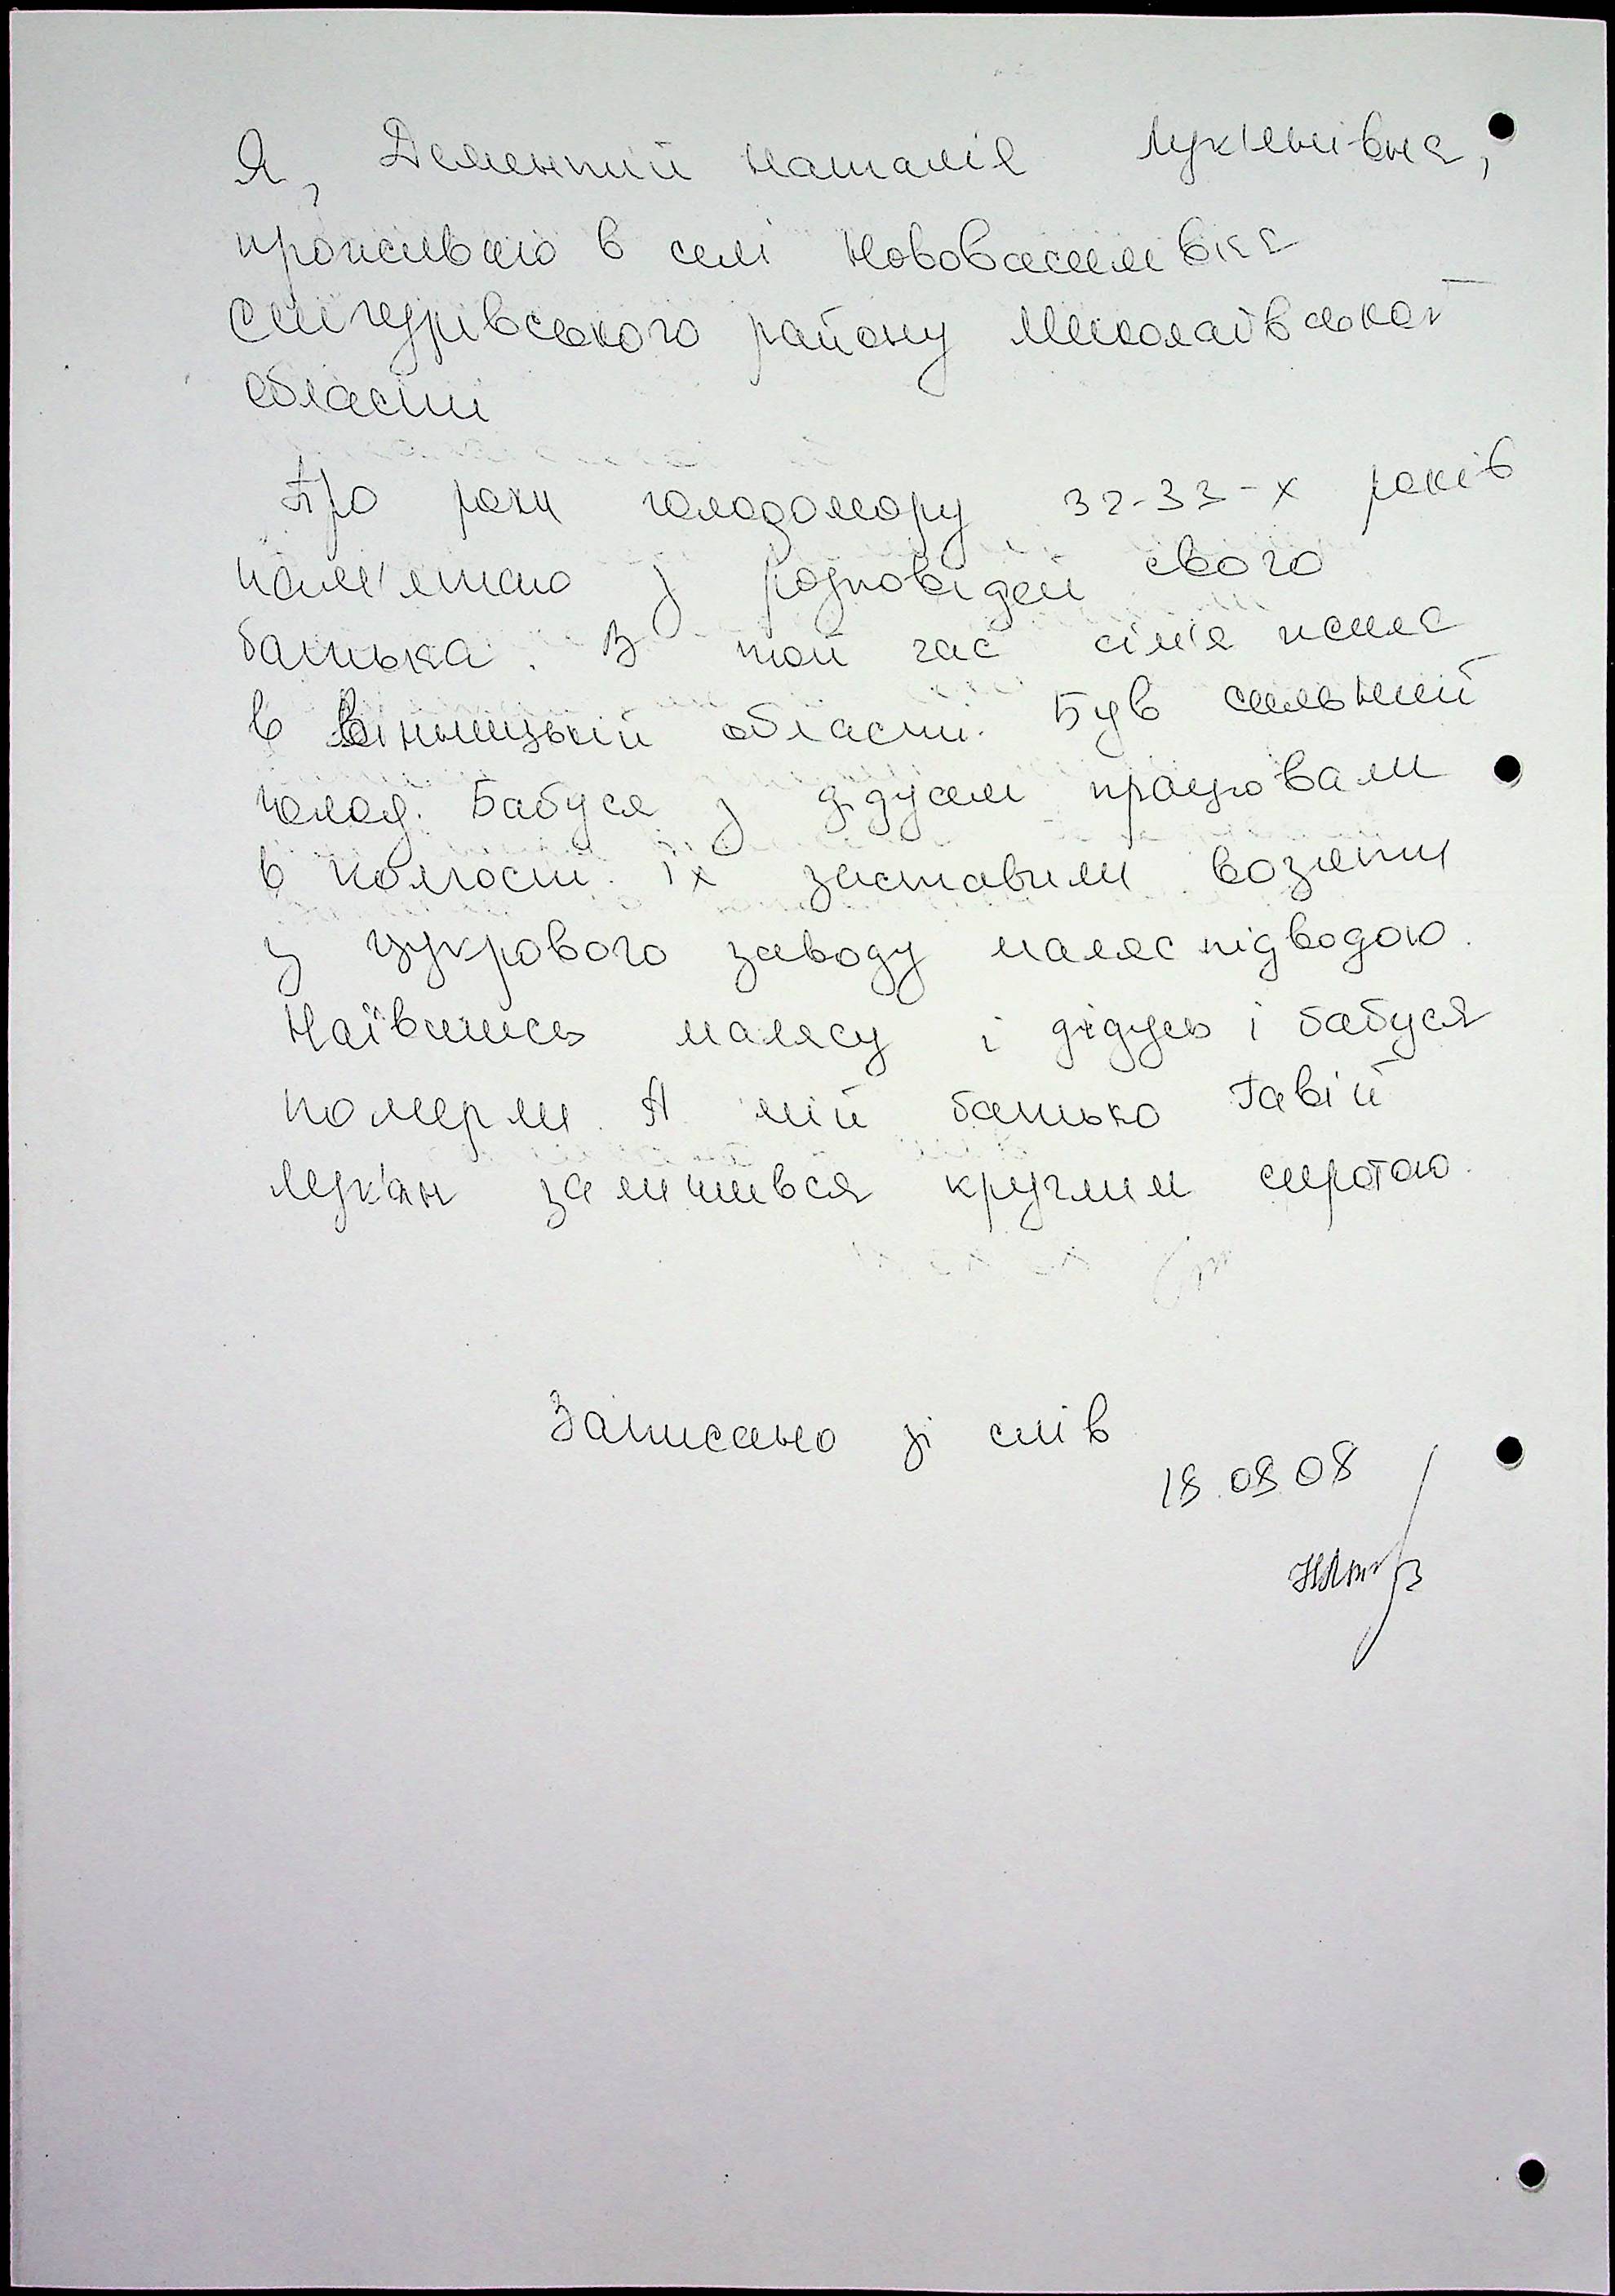 Я, Дементий Наталія Лук'янівна,
проживаю в селі Нововасилівка
Снігурівського району Миколаївської
області
Про роки голодомору 32-33-х років
пам'ятаю з розповідей свого
батька. В той час сім'я жила
в Вінницькій області. Був сильний
голод. Бабуся з дідусем працювали
в колгоспі. Їх заставили возити
з цукрового заводу маляс підводою.
Наївшись малясу і дідусь і бабуся
померли. А мій батько Гавій
Лук'ян залишився круглим сиротою.
Записано зі слів
18.08.08